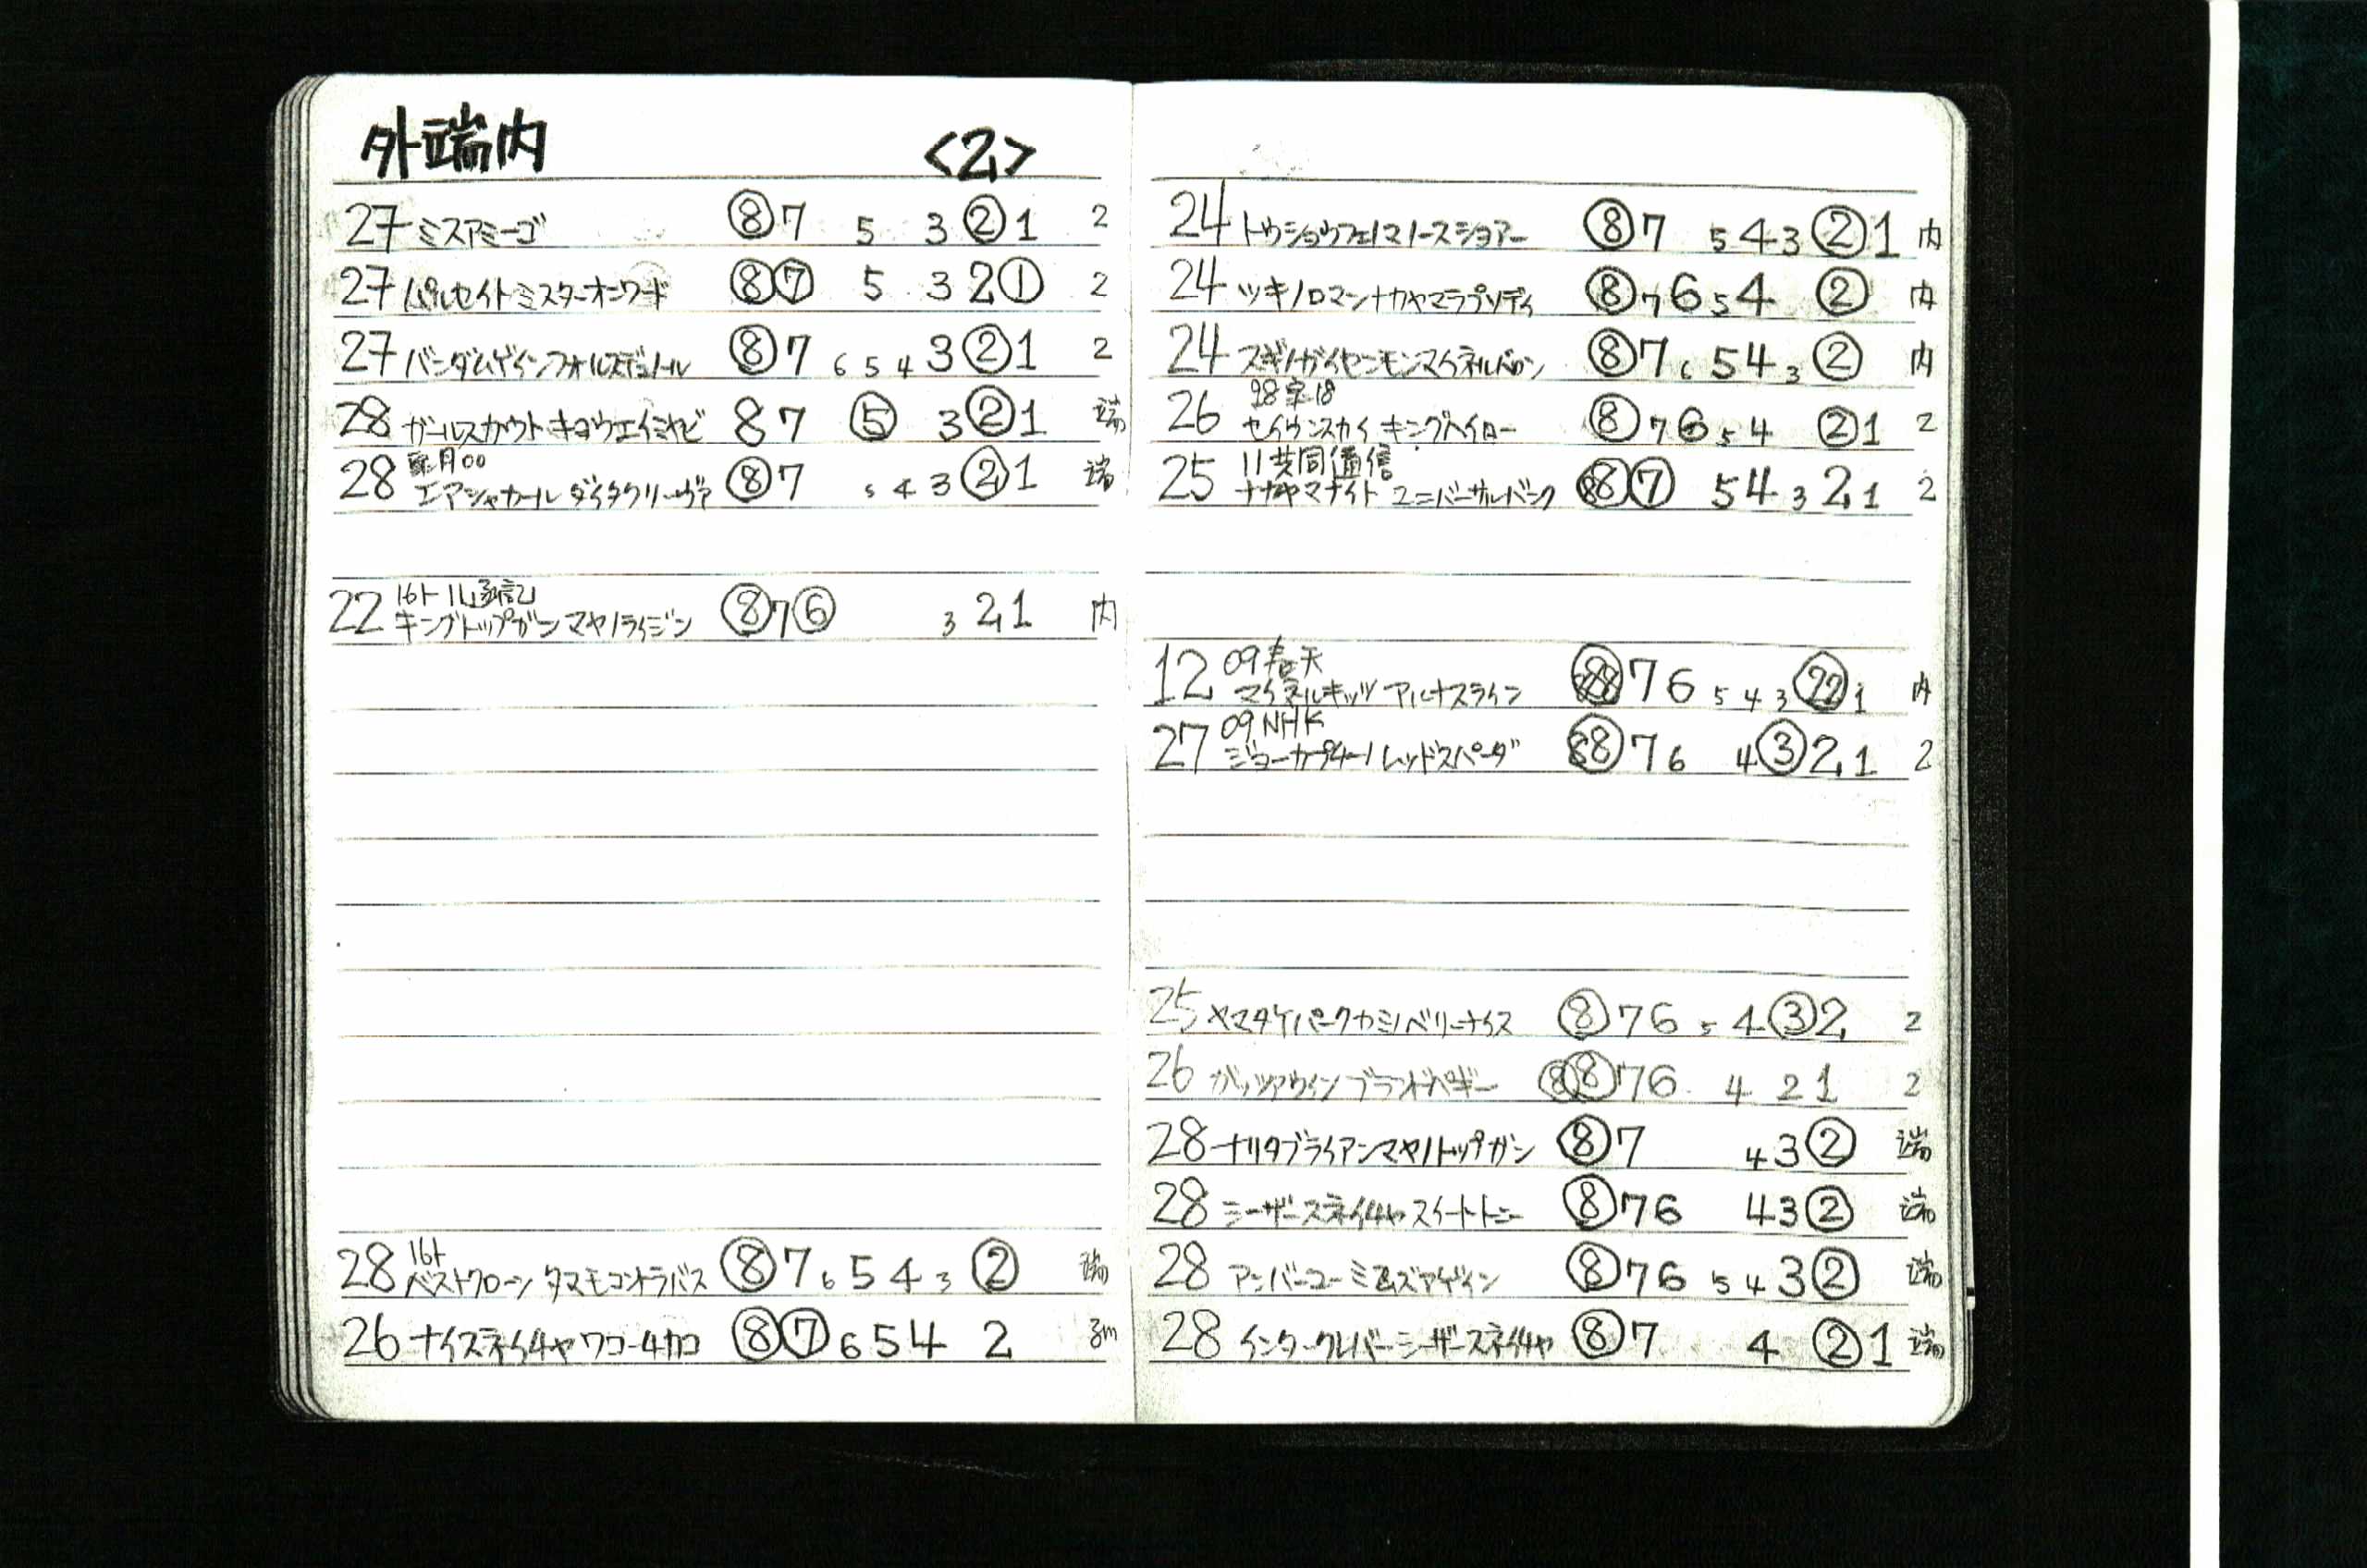 外端内 <2>
27 ミスアミーゴ ⑧7 5 3②1 2
27 パルセイト ミスターオーワード ⑧⑦ 5 3 2① 2
27 バンダムゲイン ⑧7 6 5 4 3②1 2
28 ガールスカウト キョウエイミヤビ 8 7 ⑤ 3②1 端
皐月00
28 エアシャカール ダイタクリーヴァ ⑧7 5 4 3②1 端
16ト
22 キングトップガン マヤノライジン ⑧7⑥ 3 2 1 内
16ト
28 ベストクローン タマモコントラバス ⑧7 6 5 4 3 ② 端
26 ナイスネイチャ ワコーチカコ ⑧⑦6 5 4 2 3m
24 トウショウフェノマ ノースショアー ⑧7 5 4 3②1 内
24 ツキノロマン ナカヤマラプソディ ⑧7 6 5 4 ② 内
24 ⑧7 6 5 4 3② 内
98 京18
26 セイウンスカイ キングヘイロー ⑧7 6 5 4 ②1 2
11共同通信
25 ナカヤマナイト ユニバーサルバンク ⑧⑦ 5 4 3 2 1 2
09春天
12 マイネルキッツ アルナスライン 7 6 5 4 3 1 内
09NHK
27 ジョーカプチーノ レッドスパーダ 7 6 4③2 1 2
25 ヤマタケパーク カミノベリーナイス ⑧7 6 5 4③2 2
26 ガッツアウイン ⑧⑧7 6 4 2 1 2
28 ナリタブライアン マヤノトップガン ⑧7 4 3② 端
28 シーザースネイチャ スイートトニー ⑧7 6 4 3② 端
28 アンバーユー ミムズアゲイン ⑧7 6 5 4 3② 端
28 インタークレバー シーザースネイチャ ⑧7 4 ②1 端